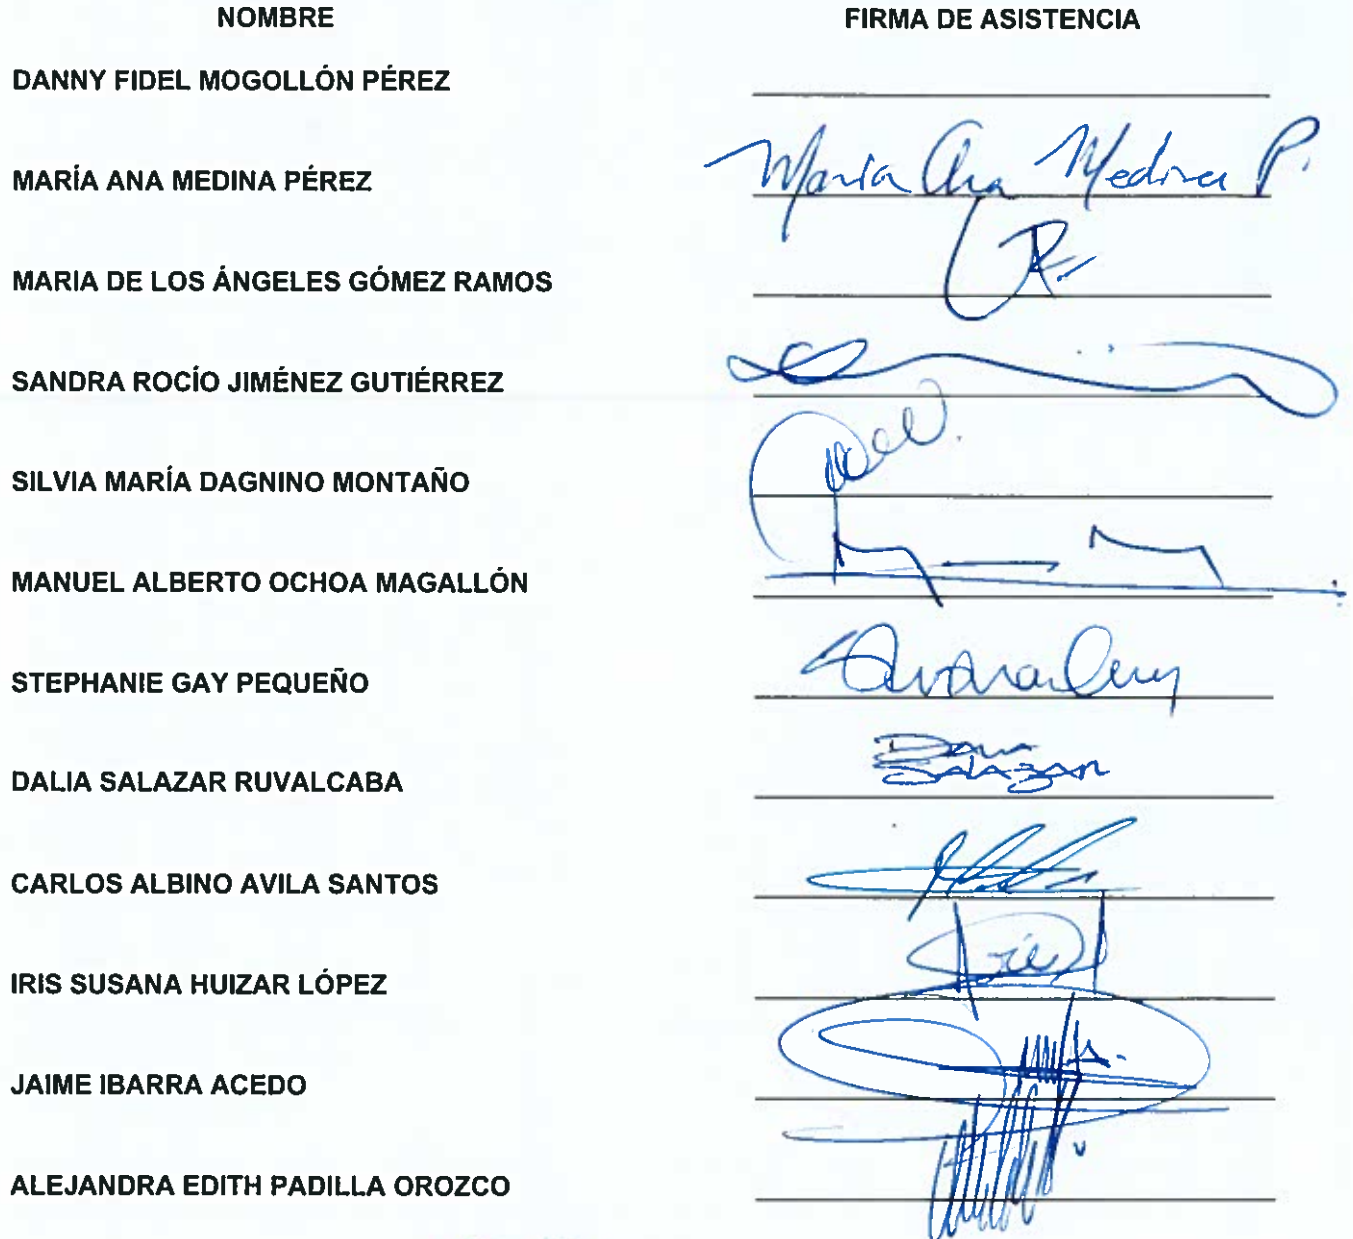 NOMBRE FIRMA DE ASISTENCIA
DANNY FIDEL MOGOLLÓN PÉREZ
MARÍA ANA MEDINA PÉREZ María Ana Medina P.
MARIA DE LOS ÁNGELES GÓMEZ RAMOS
SANDRA ROCÍO JIMÉNEZ GUTIÉRREZ
SILVIA MARÍA DAGNINO MONTAÑO
MANUEL ALBERTO OCHOA MAGALLÓN
STEPHANIE GAY PEQUEÑO
DALIA SALAZAR RUVALCABA SALAZAR
CARLOS ALBINO AVILA SANTOS
IRIS SUSANA HUIZAR LÓPEZ
JAIME IBARRA ACEDO
ALEJANDRA EDITH PADILLA OROZCO